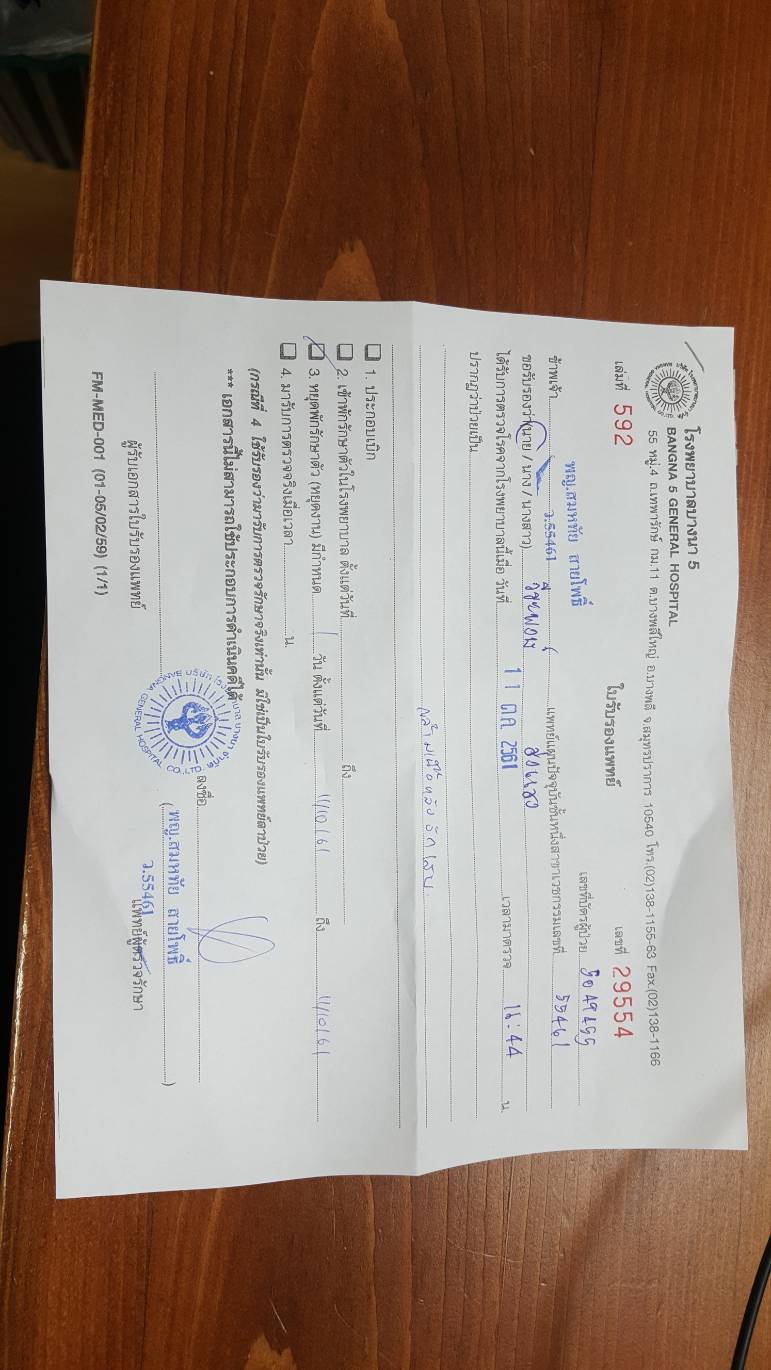 โรงพยาบาลบางนา 5
BANGNA 5 GENERAL HOSPITAL
55 หมู่.4 ถ.เทพารักษ์ กม.11 ต.บางพลีใหญ่ อ.บางพลี จ.สมุทรปราการ 10540 โทร.(02)138-1155-63 Fax.(02)138-1166
เล่มที่ 592 ใบรับรองแพทย์ เลขที่ 29554
เลขที่บัตรผู้ป่วย 5049455
พญ.สมหทัย สายโพธิ์
ข้าพเจ้า ว.55461 แพทย์แผนปัจจุบันชั้นหนึ่งสาขาเวชกรรมเลขที่ 55461
ขอรับรองว่า (นาย / นาง / นางสาว)
ได้รับการตรวจโรคจากโรงพยาบาลนี้เมื่อ วันที่ 11 ต.ค. 2561 เวลามาตรวจ 16:44 น.
ปรากฏว่าป่วยเป็น
กล้ามเนื้อหลังอักเสบ
1. ประกอบเบิก
2. เข้าพักรักษาตัวในโรงพยาบาล ตั้งแต่วันที่ ถึง
3. หยุดพักรักษาตัว (หยุดงาน) มีกำหนด 1 วัน ตั้งแต่วันที่ 11/10/61 ถึง 11/10/61
4. มารับการตรวจจริงเมื่อเวลา น.
(กรณีที่ 4 ใช้รับรองว่ามารับการตรวจรักษาจริงเท่านั้น มิใช่เป็นใบรับรองแพทย์ลาป่วย)
*** เอกสารนี้ไม่สามารถใช้ประกอบการดำเนินคดีได้
ลงชื่อ
(พญ.สมหทัย สายโพธิ์)
ว.55461
ผู้รับเอกสารใบรับรองแพทย์ แพทย์ผู้ตรวจรักษา
FM-MED-001 (01-05/02/59) (1/1)